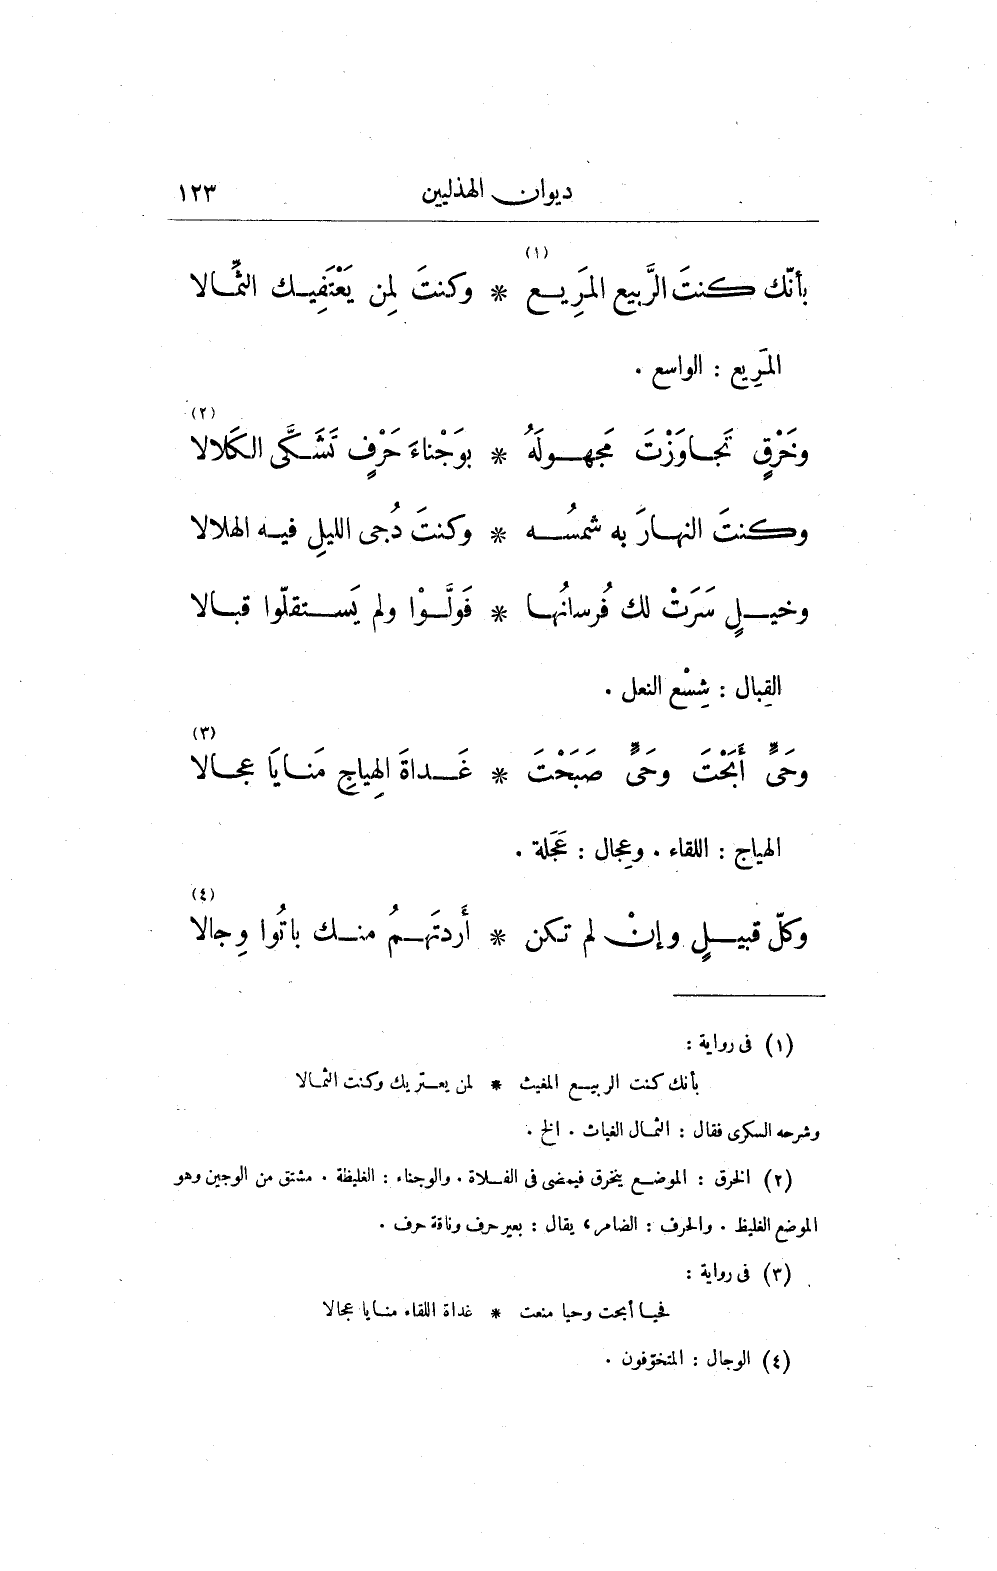 ديوان الهذليين ١٢٣
(١)
بأنّك كنتَ الرَّبيع المَرِيـع * وكنتَ لِمن يَعْتَفِيـك الثِّمـالا
المَرِيع : الواسع .
(٢)
وخَرْقٍ تَجـاوَزْتَ مَجهـولَهُ * بوَجْناءَ حَرْفٍ تَشَكَّى الكَلالا
وكنتَ النهـارَ به شمسُـه * وكنتَ دُجى الليلِ فيـه الهلالا
وخيـلٍ سَرَتْ لك فُرسانُهـا * فَولَّـوْا ولم يَسـتقلّوا قبـالا
القِبال : شِسْع النعل .
(٣)
وحَىٍّ أَبَحْتَ وحَىٍّ صَبَحْتَ * غَـداةَ الهِياجِ مَنـايَا عجـالا
الهياج : اللقاء . وعِجال : عَجَلة .
(٤)
وكلّ قبيـلٍ وإنْ لم تكن * أَردتَهـمُ منـك باتُوا وِجالا
(١) فى رواية :
بأنك كنت الربيـع المغيث * لمن يعـتريك وكنت الثمـالا
وشرحه السكرى فقال : الثمـال الغياث . الخ .
(٢) الخرق : الموضـع ينخرق فيمضى فى الفـلاة . والوجناء : الغليظة . مشتق من الوجين وهو
الموضع الغليظ . والحرف : الضامر، يقال : بعير حرف وناقة حرف .
(٣) فى رواية :
فحيـا أبحت وحيا منعت * غداة اللقاء منـايا عجالا
(٤) الوجال : المتخوّفون .